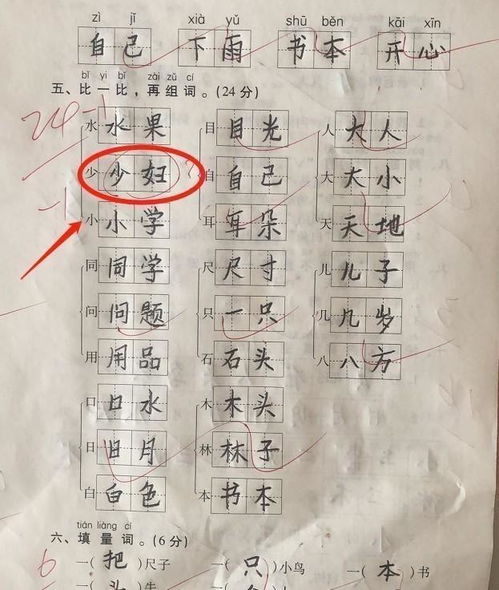 zì jǐ xià yǔ shū běn kāi xīn
自己 下雨 书本 开心
bǐ yì bǐ zài zǔ cí
五、比一比，再组词。(24分)
24-1
水 水果 目 目光 人 大人
少 少妇 自 自己 大 大小
小 小学 耳 耳朵 天 天地
同 同学 尺 尺寸 儿 儿子
问 问题 只 一只 几 几岁
用 用品 石 石头 八 八方
口 口水 木 木头
日 日月 林 林子
白 白色 本 书本
tián liàng cí
六、填量词。(6分)
6
一(把)尺子 一(只)小鸟 一(本)书
一(头)牛